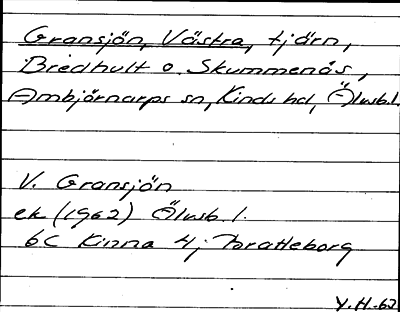 Gransjön, Västra, tjärn,
Bredhult o. Skummenås,
Ambjörnarps sn, Kinds hd, Älvsb.l.
V. Gransjön
ek (1962) Älvsb. l.
6C Kinna 4j Brattleborg
Y.H.-62